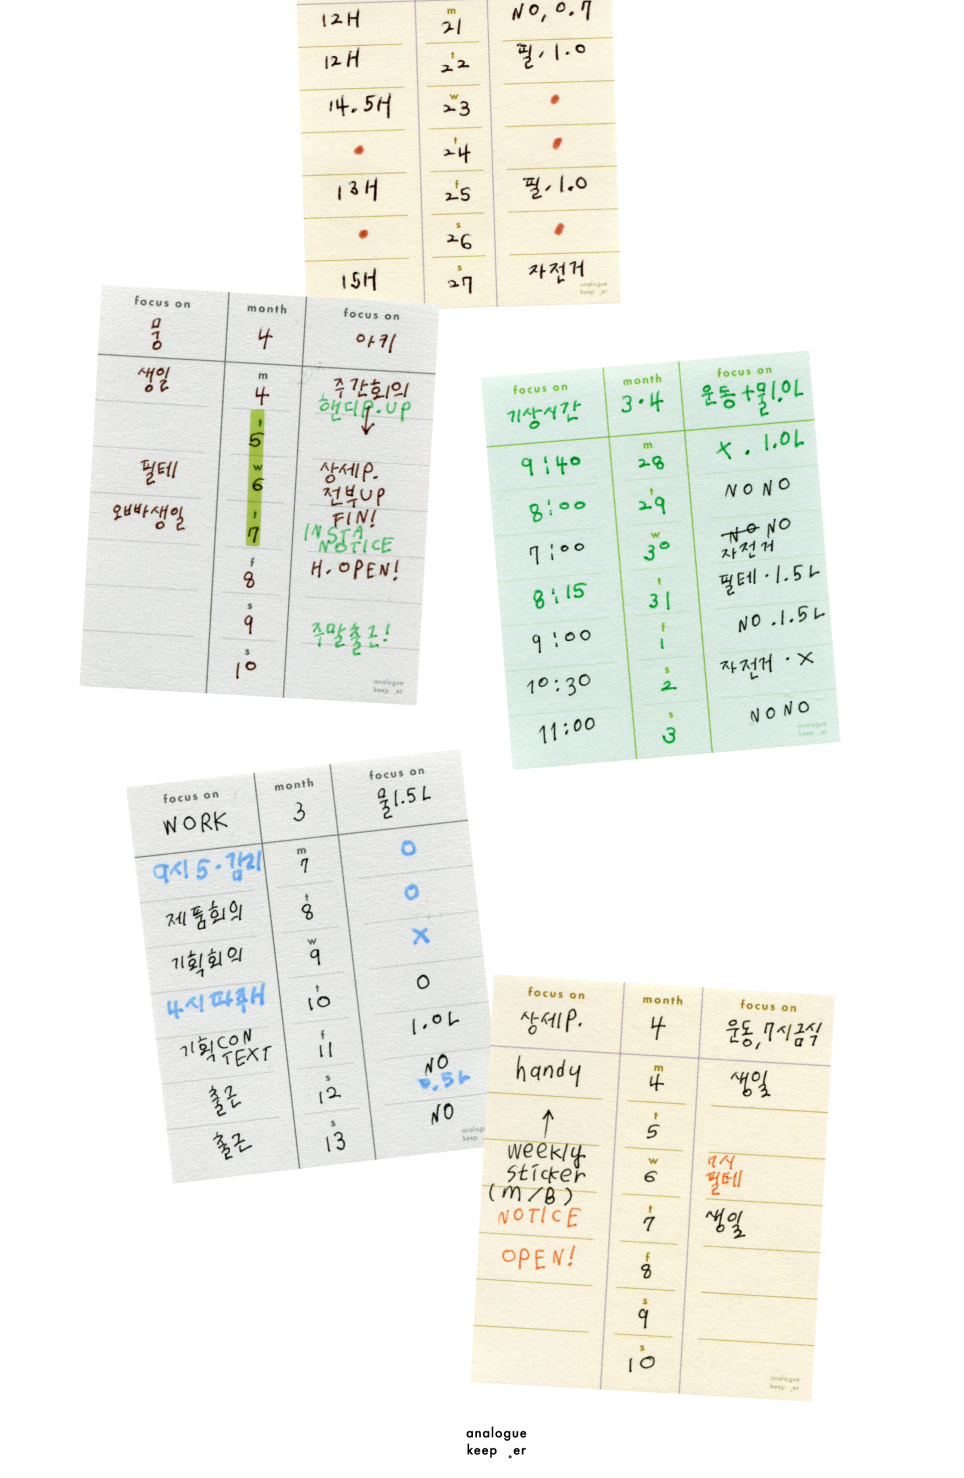 12H m 21 NO, 0.7
12H t 22 필, 1.0
14.5H w 23
t 24
13H f 25 필, 1.0
s 26
15H s 27 자전거
analogue
keep _er
focus on month focus on
뭉 4 아키
생일 m 4 주간회의
핸디P.UP
t 5
필테 w 6 상세P.
전부UP
오빠생일 t 7 FIN!
INSTA
NOTICE
f 8 H. OPEN!
s 9 주말출근!
s 10
analogue
keep _er
focus on month focus on
기상시간 3·4 운동+물1.0L
9:40 m 28 X . 1.0L
8:00 t 29 NO NO
7:00 w 30 NO NO
자전거
8:15 t 31 필테 · 1.5L
9:00 f 1 NO . 1.5L
10:30 s 2 자전거 · X
11:00 s 3 NO NO
analogue
keep _er
focus on month focus on
WORK 3 물1.5L
9시 5·감리 m 7 O
제품회의 t 8 O
기획회의 w 9 X
4시 t 10 O
기획CON
TEXT f 11 1.0L
출근 s 12 NO
0.5L
출근 s 13 NO
analogue
keep
focus on month focus on
상세P. 4 운동, 7시금식
handy m 4 생일
t 5
weekly
sticker w 6 7시
필테
(M/B)
NOTICE t 7 생일
OPEN! f 8
s 9
s 10
analogue
keep _er
analogue
keep _er